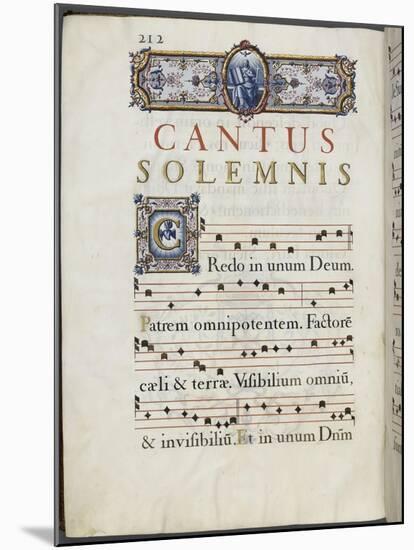 212
CANTUS
SOLEMNIS
CRedo in unum Deum.
Patrem omnipotentem. Factorē
cæli & terræ. Viſibilium omniū,
& inviſibiliū. Et in unum Dn̄m